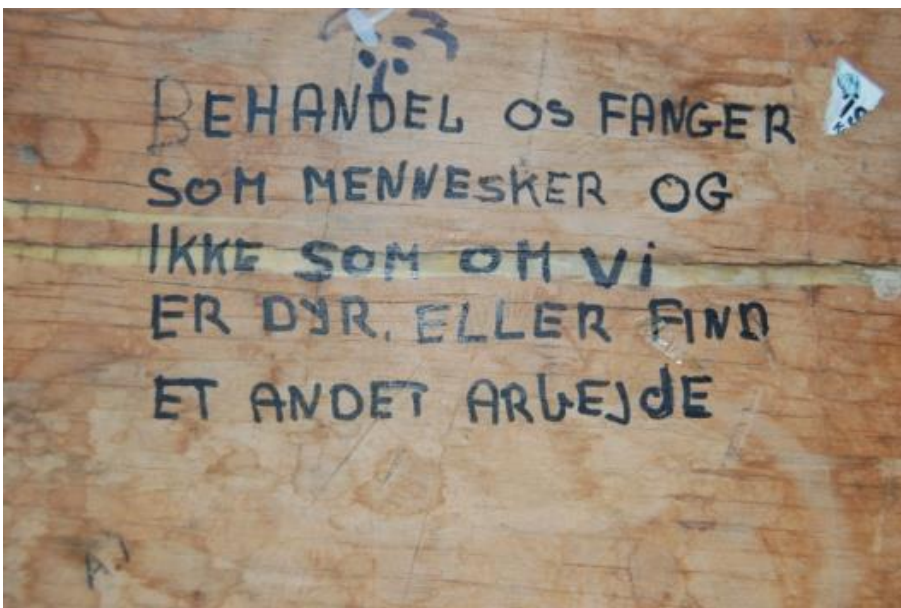 BEHANDEL OS FANGER
SOM MENNESKER OG
IKKE SOM OM Vi
ER DYR. ELLER FIND
ET ANDET ARbEJdE